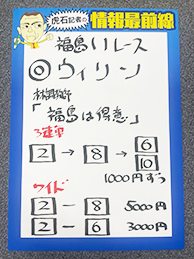 虎石記者の 情報最前線
福島11レース
◎ウィリン
「福島は得意」
3連単
2 → 8 → 6
10
1000円ずつ
ワイド
2 − 8 5000円
2 − 6 3000円